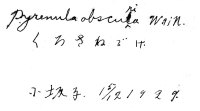 Pyrenula obscura Wain.
くろさねごけ
小坂子. 15/12 1929